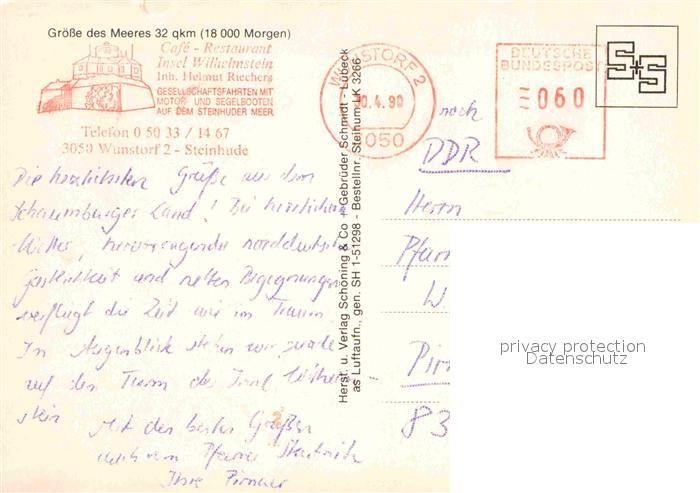 Größe des Meeres 32 qkm (18 000 Morgen)
Café - Restaurant
Insel Wilhelmstein
Inh. Helmut Riechers
GESELLSCHAFTSFAHRTEN MIT
MOTOR- UND SEGELBOOTEN
AUF DEM STEINHUDER MEER
Telefon 0 50 33 / 14 67
3050 Wunstorf 2 - Steinhude
WUNSTORF 2
10.4.90
3050
DEUTSCHE
BUNDESPOST
060
S+S
Die herzlichsten Grüße aus dem
Schaumburger Land! Bei herrlichem
Wetter, hervorragender norddeutscher
Gastlichkeit und netten Begegnungen
verfliegt die Zeit wie im Traum.
Im Augenblick stehen wir gerade
auf dem Turm der Insel Wilhelm-
stein
Mit den besten Grüßen
auch von Pfarrer
Ihre Pirnaer
Herst. u. Verlag Schöning & Co + Gebrüder Schmidt - Lübeck
as Luftaufn., gen. SH 1-51298 - Bestellnr. Steihum LK 3266
nach
DDR
Herrn
Pfarr
W
Pirn
83
privacy protection
Datenschutz